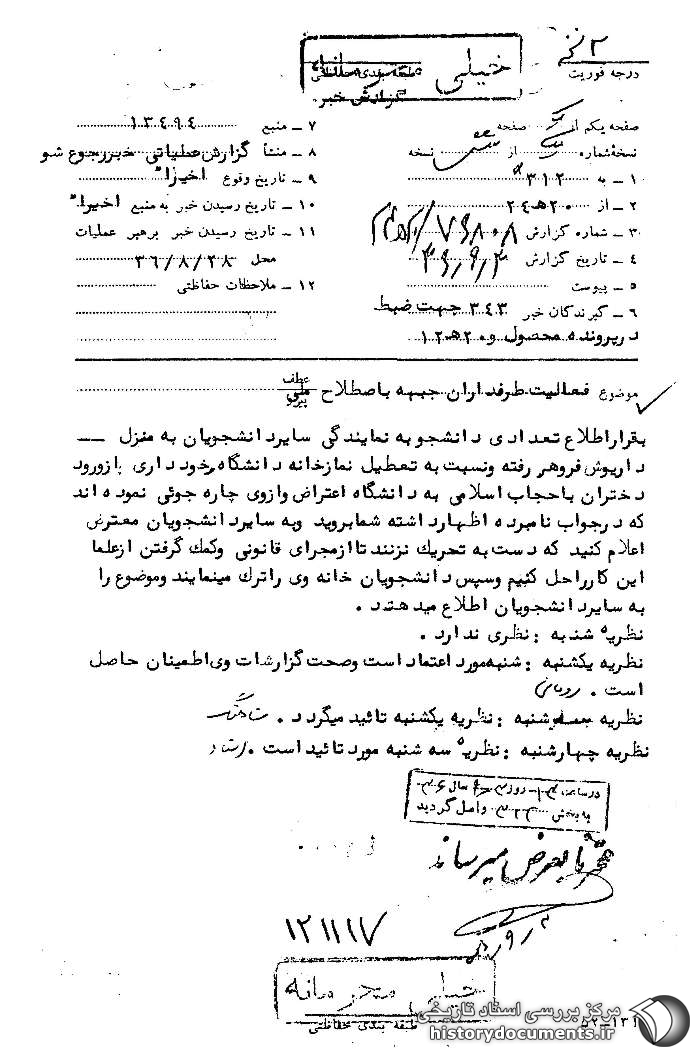 درجه فوریت
خیلی
طبقه بندی حفاظتی
گزارش خبر
صفحه یکم از صفحه
نسخه شماره از شش نسخه
۱ ـ به ۳۱۲
۲ ـ از ۲۰ هـ ۲۴
۳ ـ شماره گزارش
۴ ـ تاریخ گزارش
۵ ـ پیوست
۶ ـ گیرندگان خبر ۳۴۳ جهت ضبط
درپرونده محصول و ۲۰ هـ ۱۲
۷ ـ منبع ۱۳۴۹۴
۸ ـ منشأ گزارش عملیاتی خبر رجوع شو
۹ ـ تاریخ وقوع اخیراً
۱۰ ـ تاریخ رسیدن خبر به منبع اخیراً
۱۱ ـ تاریخ رسیدن خبر برهبر عملیات
محل ۳۶/۸/۲۸
۱۲ ـ ملاحظات حفاظتی
موضوع فعالیت طرفداران جبهه باصطلاح ملی
عطف
پیرو
بقراراطلاع تعدادی دانشجو به نمایندگی سایردانشجویان به منزل ــ
داریوش فروهر رفته ونسبت به تعطیل نمازخانه دانشگاه وخودداری بازورود
دختران باحجاب اسلامی به دانشگاه اعتراض وازوی چاره جوئی نموده اند
که درجواب نامبرده اظهارداشته شمابروید وبه سایردانشجویان معترض
اعلام کنید که دست به تحریك نزنند تاازمجرای قانونی وکمك گرفتن ازعلما
این کارراحل کنیم وسپس دانشجویان خانه وی راترك مینمایند وموضوع را
به سایردانشجویان اطلاع میدهند .
نظریه شنبه : نظری ندارد .
نظریه یکشنبه : شنبه مورد اعتماد است وصحت گزارشات وی اطمینان حاصل
است .
نظریه سه شنبه : نظریه یکشنبه تائید میگردد .
نظریه چهارشنبه : نظریه سه شنبه مورد تائید است .
درساعت روز سال ۳۶
به بخش ۳۱۲ واصل گردید
بعرض میرساند
۱۲۱۱۱۷
خیلی محرمانه
طبقه بندی حفاظتی
مرکز بررسی اسناد تاریخی
historydocuments.ir